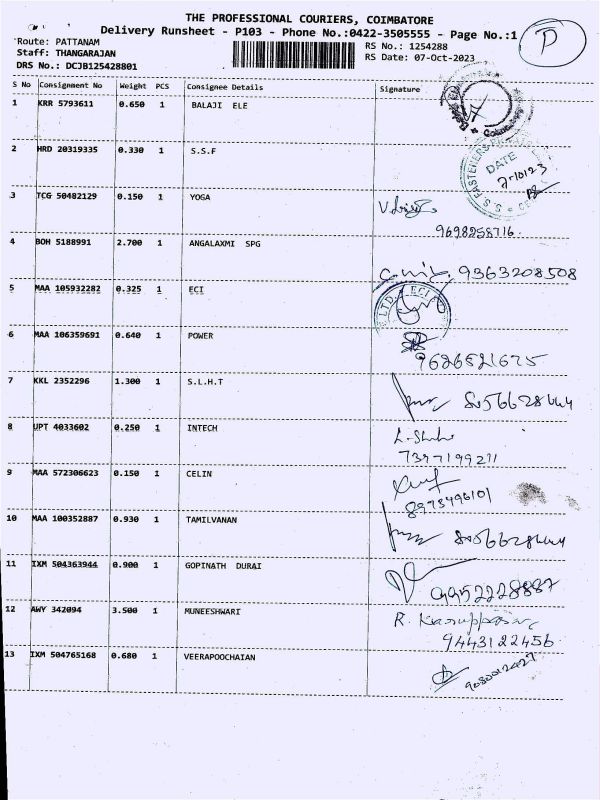 THE PROFESSIONAL COURIERS, COIMBATORE
Delivery Runsheet - P103 - Phone No.:0422-3505555 - Page No.:1
P
Route: PATTANAM
RS No.: 1254288
Staff: THANGARAJAN
RS Date: 07-Oct-2023
DRS No.: DCJB125428801
S No Consignment No Weight PCS Consignee Details Signature
1 KRR 5793611 0.650 1 BALAJI ELE
2 HRD 20319335 0.330 1 S.S.F
DATE
3 TCG 50482129 0.150 1 YOGA
9698258716
4 BOH 5188991 2.700 1 ANGALAXMI SPG
9363208508
5 MAA 105932282 0.325 1 ECI
LTD. ECI
6 MAA 106359691 0.640 1 POWER
9626521675
7 KKL 2352296 1.300 1 S.L.H.T
8 UPT 4033602 0.250 1 INTECH
7397199211
9 MAA 572306623 0.150 1 CELIN
8973496101
10 MAA 100352887 0.930 1 TAMILVANAN
11 IXM 504363944 0.900 1 GOPINATH DURAI
9952228887
12 AWY 342094 3.500 1 MUNEESHWARI
R.
9443122456
13 IXM 504765168 0.680 1 VEERAPOOCHAIAN
9080012427